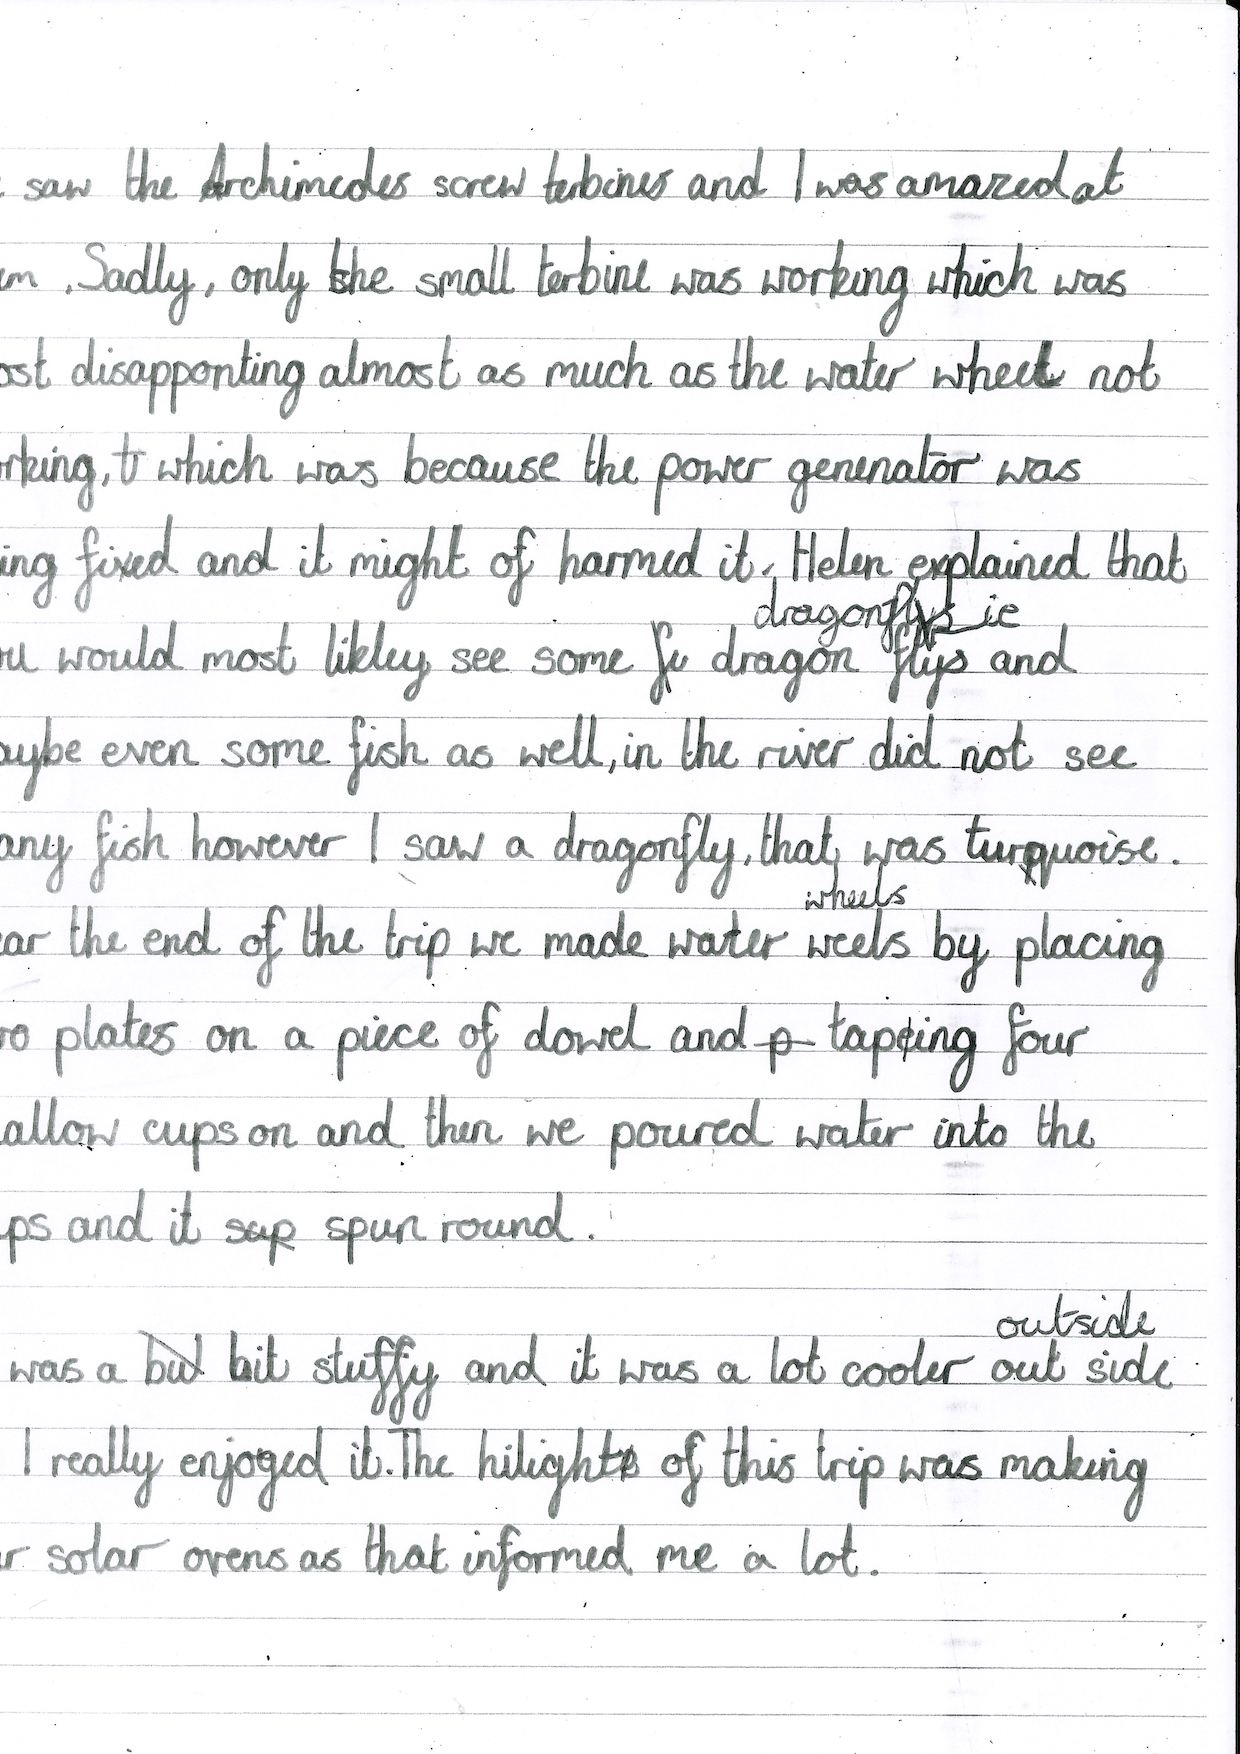 saw the Archimedes screw terbines and I was amazed at
m. Sadly, only the small terbine was working which was
ost disapponting almost as much as the water wheel not
rking, t which was because the power genenator was
ing fixed and it might of harmed it, Helen explained that
dragonflys ie
ou would most likley see some fu dragon flys and
aybe even some fish as well, in the river did not see
any fish however I saw a dragonfly, that, was turquoise.
wheels
ear the end of the trip we made water weels by placing
wo plates on a piece of dowel and p tapeing four
allow cups on and then we poured water into the
ps and it sup spun round.
outside
was a bud bit stuffy and it was a lot cooler out side
I really enjoged it. The hilights of this trip was making
ur solar ovens as that informed me a lot.